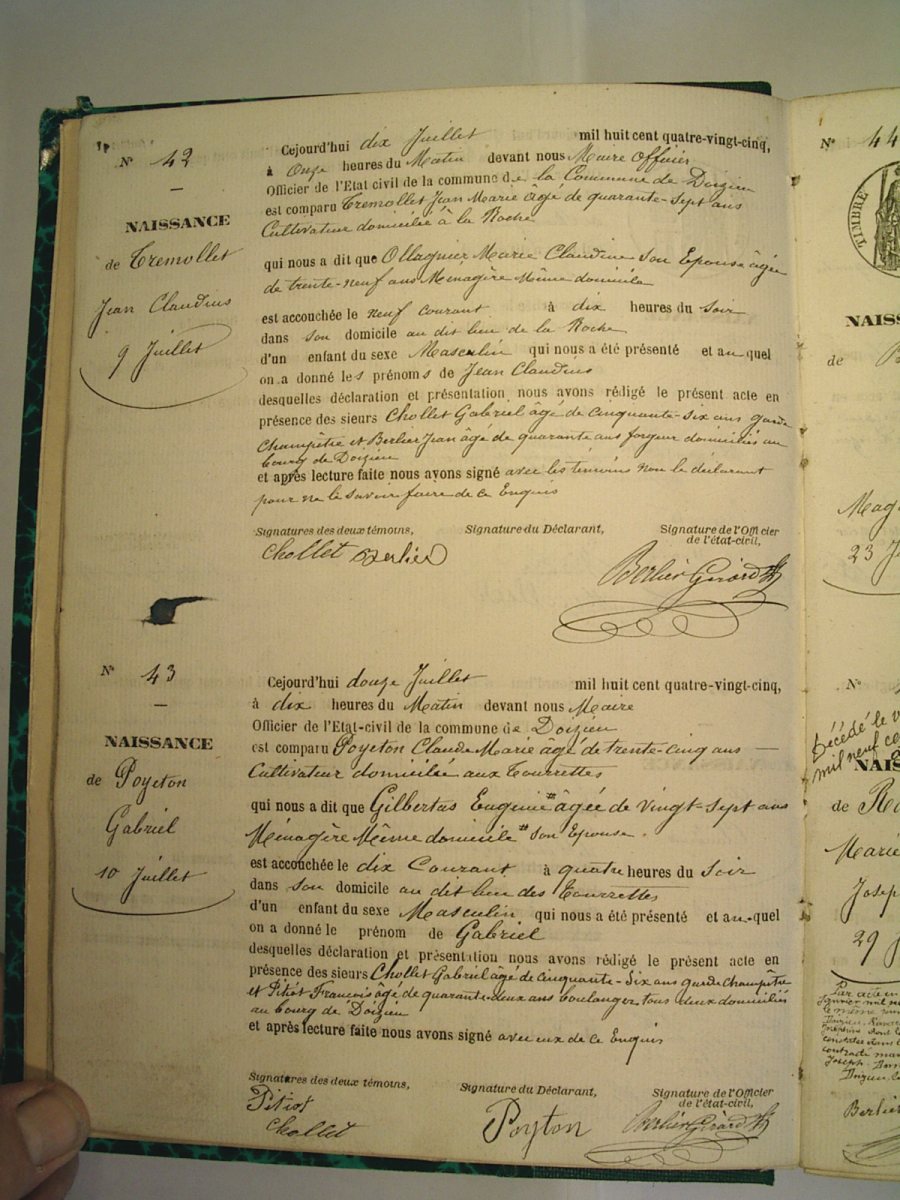 N° 42
—
NAISSANCE
de Tremollet
Jean Claudius
9 Juillet
Cejourd'hui dix Juillet mil huit cent quatre-vingt-cinq,
à Onze heures du Matin devant nous Maire Officier
Officier de l'Etat civil de la commune de la Commune de Doizieu
est comparu Tremollet Jean Marie âgé de quarante-sept ans
Cultivateur domicilié à la Roche
qui nous a dit que Ollagnier Marie Claudine Son Epouse âgée
de trente-neuf ans Menagère Même domicile
est accouchée le neuf courant à dix heures du Soir
dans son domicile au dit lieu de la Roche
d'un enfant du sexe Masculin qui nous a été présenté et au quel
on a donné les prénoms de Jean Claudius
desquelles déclaration et présentation nous avons rédigé le présent acte en
présence des sieurs Chollet Gabriel âgé de cinquante-six ans garde
Champêtre et Berlier Jean âgé de quarante ans forgeur domiciliés au
bourg de Doizieu
et après lecture faite nous avons signé avec les témoins non le déclarant
pour ne le savoir faire de ce Enquis
Signatures des deux témoins, Signature du Déclarant, Signature de l'Officier
de l'état-civil,
Chollet Berlier
Berlier Girard
N° 43
—
NAISSANCE
de Poyeton
Gabriel
10 Juillet
Cejourd'hui douze Juillet mil huit cent quatre-vingt-cinq,
à dix heures du Matin devant nous Maire
Officier de l'Etat-civil de la commune de Doizieu
est comparu Poyeton Claude Marie âgé de trente-cinq ans —
Cultivateur domicilié aux Tourrettes
qui nous a dit que Gilbertas Eugenie # âgée de vingt-sept ans
Ménagère Même domicile # Son Epouse.
est accouchée le dix Courant à quatre heures du Soir
dans son domicile au dit lieu des Tourrettes
d'un enfant du sexe Masculin qui nous a été présenté et au-quel
on a donné le prénom de Gabriel
desquelles déclaration et présentation nous avons rédigé le présent acte en
présence des sieurs Chollet Gabriel âgé de cinquante-six ans garde champêtre
et Pitiot François âgé de quarante-deux ans boulanger tous deux domiciliés
au bourg de Doizieu
et après lecture faite nous avons signé avec eux de ce Enquis
Signatures des deux témoins, Signature du Déclarant, Signature de l'Officier
de l'état-civil,
Pitiot
Chollet
Poyton
Berlier Girard
N° 44
TIMBRE
NAISS
de
Mag
23 J
N°
Décédé le
mil neuf ce
NAIS
de
Marie
Joseph
29 J
Par acte en
le même
Doizieu
Joseph
Berlier